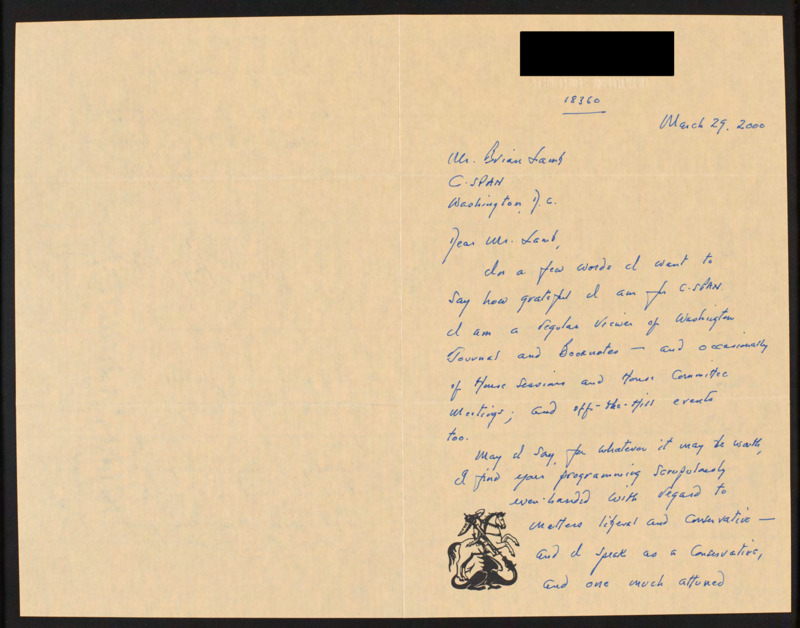 18360
March 29, 2000
Mr. Brian Lamb
C-SPAN
Washington, D.C.
Dear Mr. Lamb,
In a few words I want to
say how grateful I am for C-SPAN.
I am a regular viewer of Washington
Journal and Booknotes — and occasionally
of House Sessions and House Committee
Meetings; and off-the-Hill events
too.
May I say, for whatever it may be worth,
I find your programming scrupulously
even-handed with regard to
matters liberal and conservative —
and I speak as a Conservative,
and one much attuned